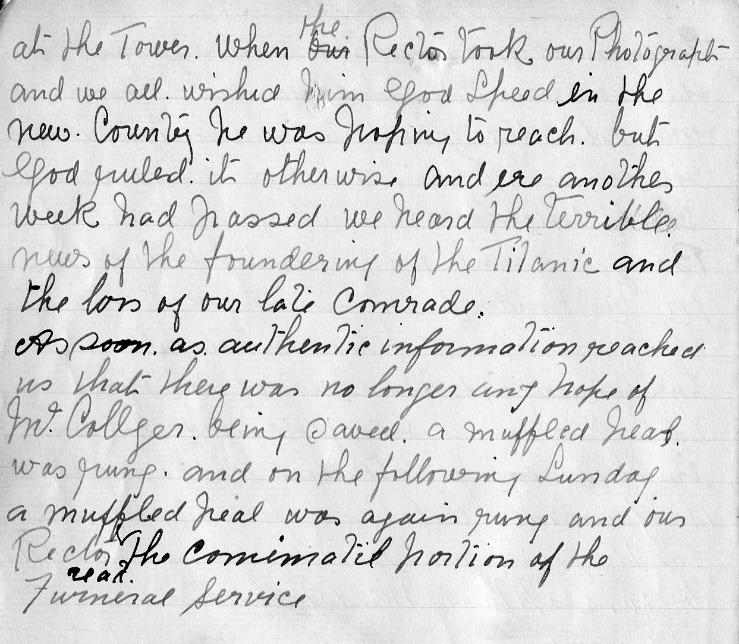 at the Tower. When the our Rector took our Photograph
and we all. wished him God Speed in the
new. County he was hoping to reach. but
God ruled. it otherwise and ere another
week had passed we heard the terrible.
news of the foundering of the Titanic and
the loss of our late Comrade.
As soon. as. authentic information reached
us that there was no longer any hope of
Mr. Collyer. being saved. a muffled peal.
was rung. and on the following Sunday
a muffled peal was again rung and our
Rector read. the comimatil portion of the
Furneral Service